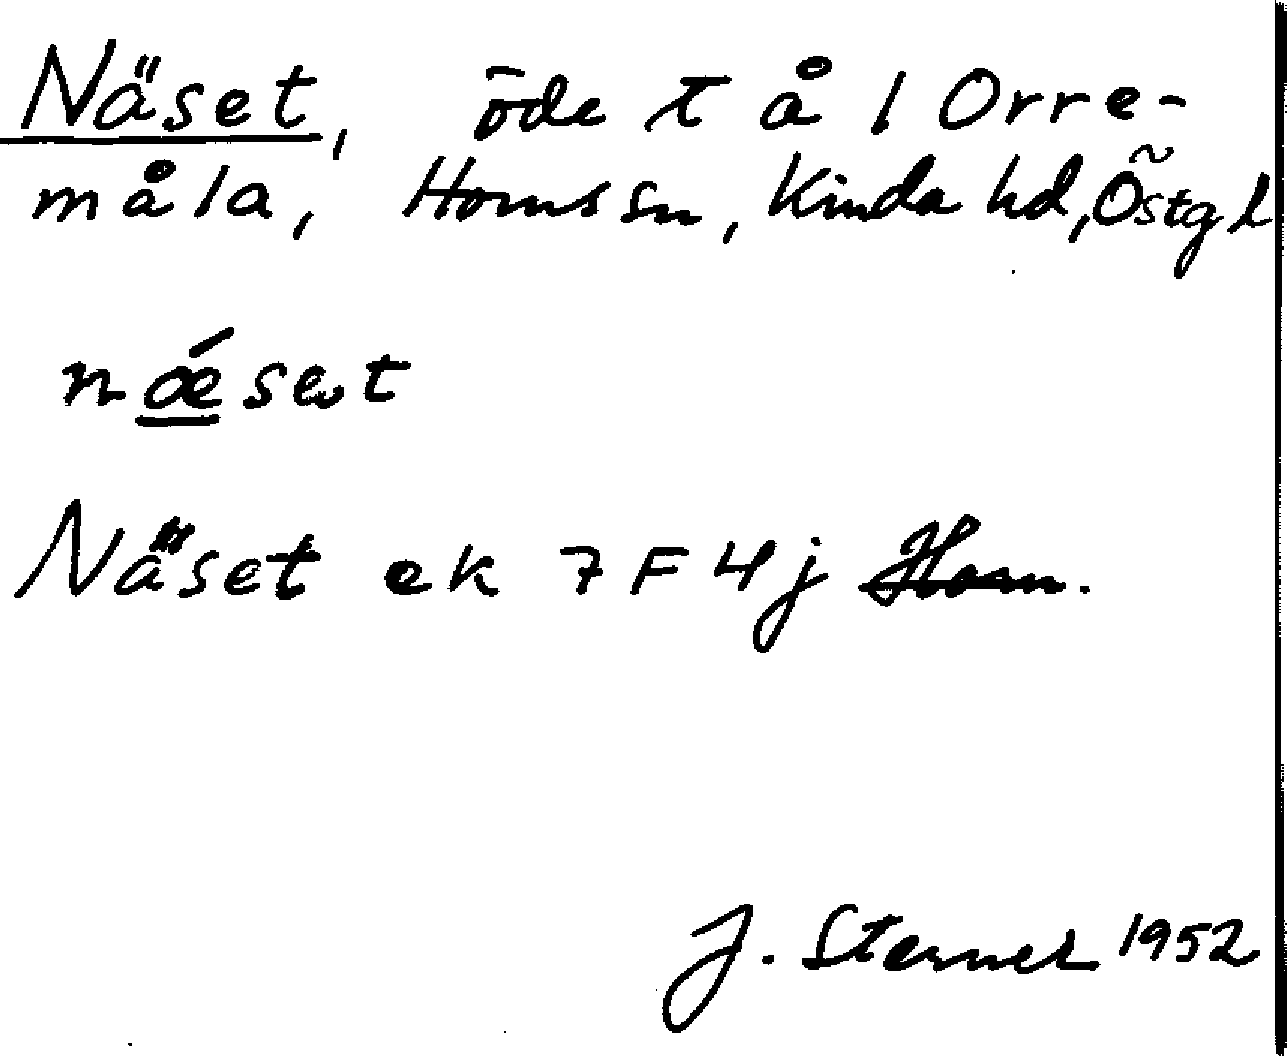 Näset, öde t å 1 Orre-
måla, Horns sn, Kinda hd, Östgl
nǽset
Näset ek 7F4j Horn.
J. Sterner 1952